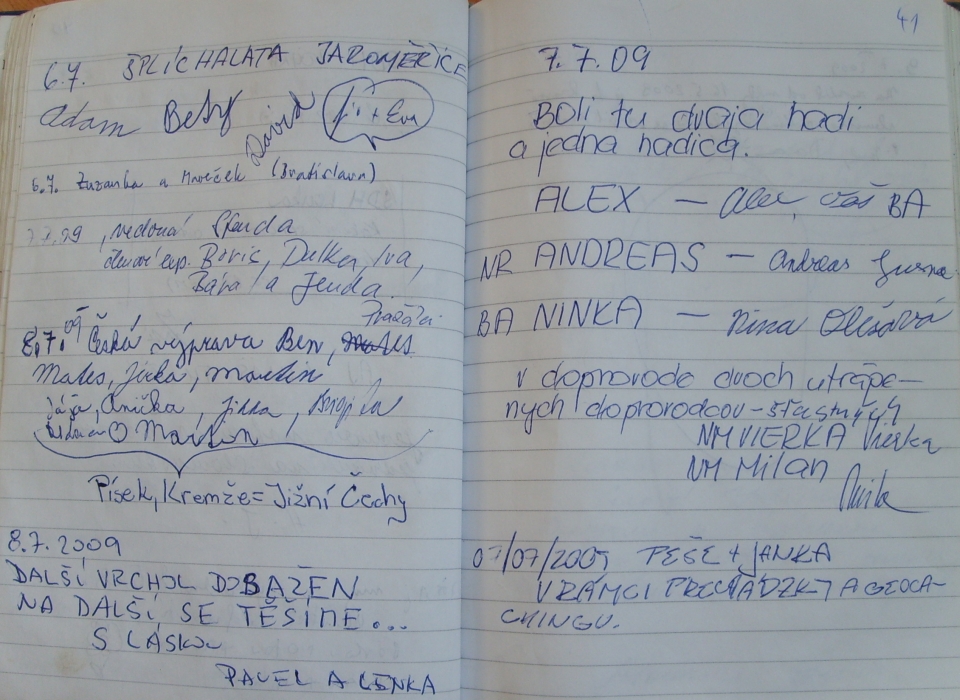 6.7. ŠPLÍCHALATA JAROMĚŘICE
Adam Bety David Jiří + Eva
6.7. Zuzanka a Mreček (Bratislava)
7.7.09
Boris, Delka, Iva,
Bára a Jenda.
Pražáci
8.7.09 Česká výprava Ben,
Mates, Jirka, Martin
Jája, Anička, Jitka,
Martin
Písek, Kremže = Jižní Čechy
8.7.2009
DALŠÍ VRCHOL DOBAŽEN
NA DALŠÍ SE TĚŠÍME...
S LÁSKOU
PAVEL A LENKA
41
7.7.09
Boli tu dvaja hadi
a jedna hadica.
ALEX — BA
NR ANDREAS — Andreas
BA NINKA — Nina Olešová
v doprovode dvoch utrápe-
ných doprovodcov - šťastných
NM VIERKA Vierka
NM Milan
07/07/2009 PEŠE + JANKA
V RÁMCI PRECHÁDZKY A GEOCA-
CHINGU.